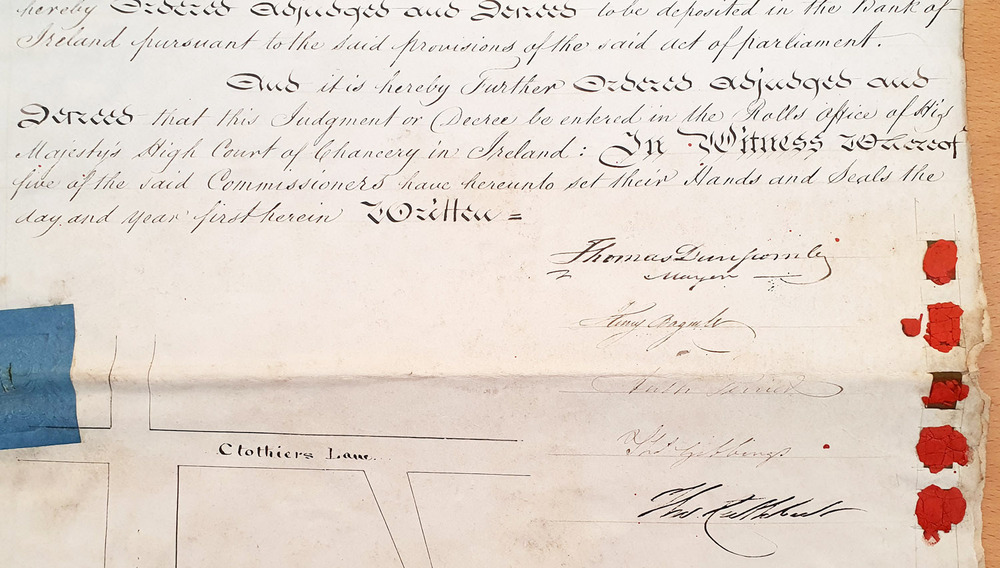 hereby Ordered Adjudged and Decreed to be deposited in the Bank of
Ireland pursuant to the said provisions of the said act of parliament.
And it is hereby Further Ordered Adjudged and
Decreed that this Judgment or Decree be entered in the Rolls Office of His
Majesty's High Court of Chancery in Ireland: In Witness Whereof
five of the said Commissioners have hereunto set their Hands and Seals the
day and year first herein Written =
Thomas Dunscombe
Mayor
Henry Bagnell
Gibbings
Thos. Cuthbert
Clothiers Lane